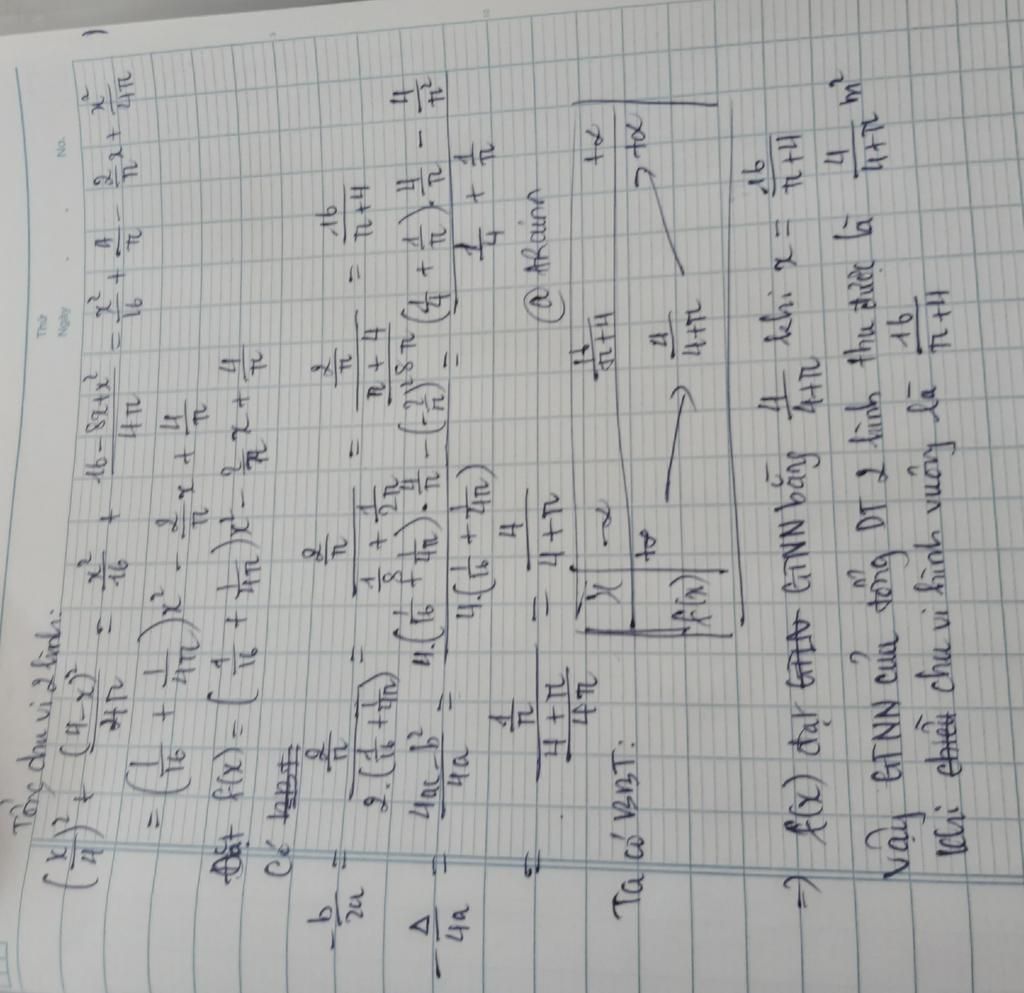 Thứ
Ngày
No.
Tổng chu vi 2 hình:
(x/4)² + (4-x)²/4π = x²/16 + (16-8x+x²)/4π = x²/16 + 4/π - 2/π x + x²/4π
= (1/16 + 1/4π)x² - 2/π x + 4/π
Đặt f(x) = (1/16 + 1/4π)x² - 2/π x + 4/π
Có BBT
-b/2a = (2/π)/(2.(1/16 + 1/4π)) = (2/π)/(1/8 + 1/2π) = (2/π)/((π+4)/8π) = 16/(π+4)
-Δ/4a = (4ac-b²)/4a = (4.(1/16 + 1/4π).4/π - (2/π)²)/(4.(1/16 + 1/4π)) = ((1/4 + 1/π).4/π - 4/π²)/(1/4 + 1/π)
= (1/π)/((4+π)/4π) = 4/(4+π)
@ ARainn
Ta có BBT:
x -∞ 16/(π+4) +∞
f(x) +∞ 4/(4+π) +∞
=> f(x) đạt GTNN bằng 4/(4+π) khi x = 16/(π+4)
Vậy GTNN của tổng DT 2 hình thu được là 4/(4+π) m²
khi chu vi hình vuông là 16/(π+4)